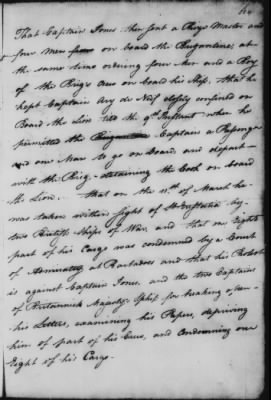 That Captain Jones then sent a Prize Master and
four Men on board the Brigantine, at
the same time ordering four Men and a Boy
of the Brig's Crew on board his Ship, that he
kept Captain Ary de Neif closely confined on
Board the Lion till the 9th Instant when he
permitted the Captain a Passenger
and one Man to go on board and depart
with the Brig, detaining the Cook on board
the Lion. that on the 11th of March he
was taken within sight of St Eustatia by
two British Ships of War, and that one Eighth
part of his Cargo was condemned by a Court
of Admiralty at Barbados and that his Protest
is against Captain Jones, and the two Captains
of Britannick Majesty Ships for breaking open
his Letters, examining his Papers, depriving
him of part of his Crew, and Condemning one
Eight of his Cargo.